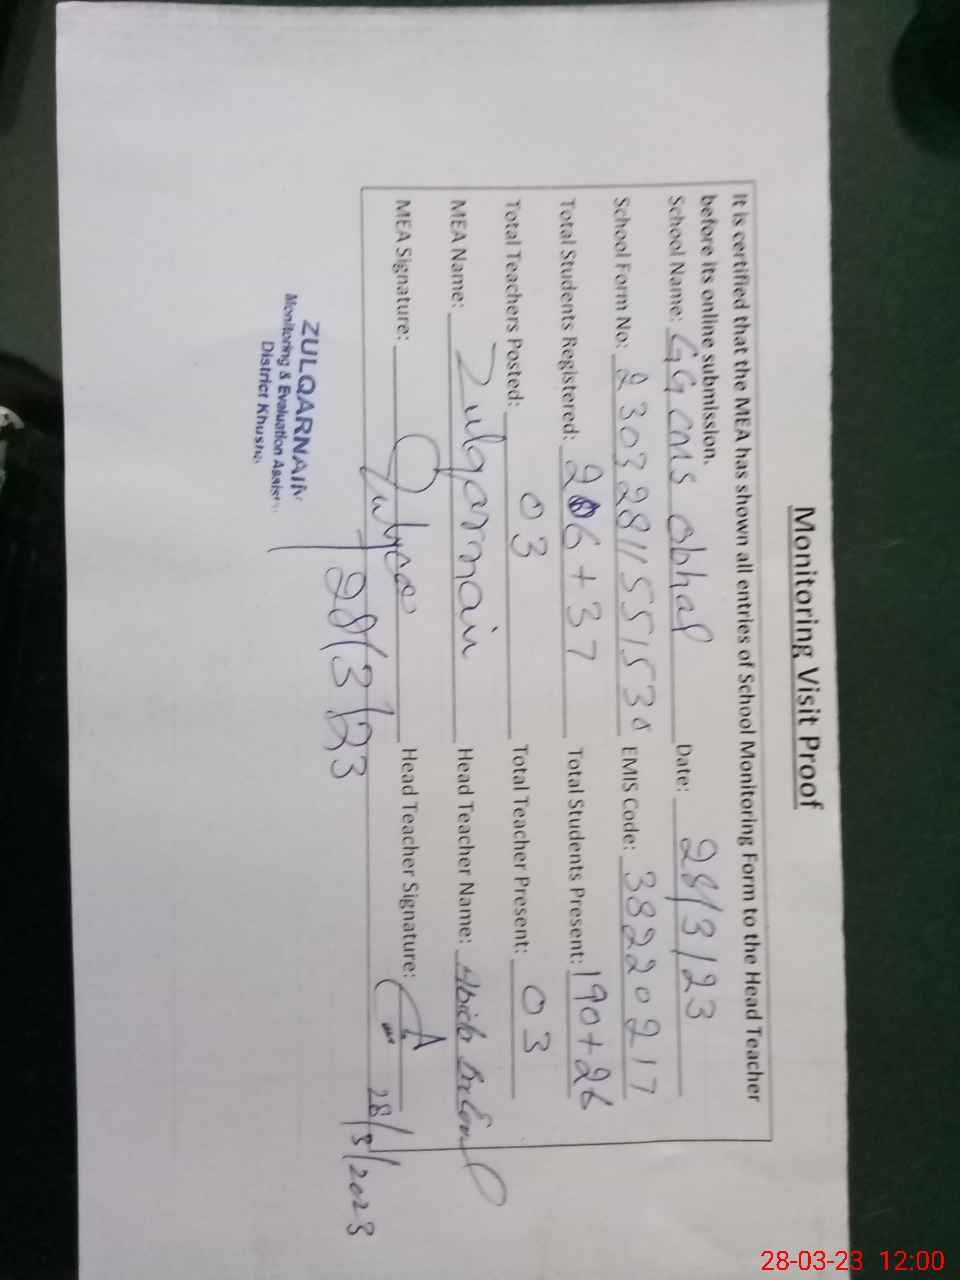 Monitoring Visit Proof
It is certified that the MEA has shown all entries of School Monitoring Form to the Head Teacher
before its online submission.
School Name: GGCMS Obhal Date: 28/3/23
School Form No: 23032811551530 EMIS Code: 38220217
Total Students Registered: 206+37 Total Students Present: 190+26
Total Teachers Posted: 03 Total Teacher Present: 03
MEA Name: Zulqarnain Head Teacher Name:
MEA Signature: Head Teacher Signature:
28/3/23 28/3/2023
ZULQARNAIN
Monitoring & Evaluation
District
28-03-23 12:00